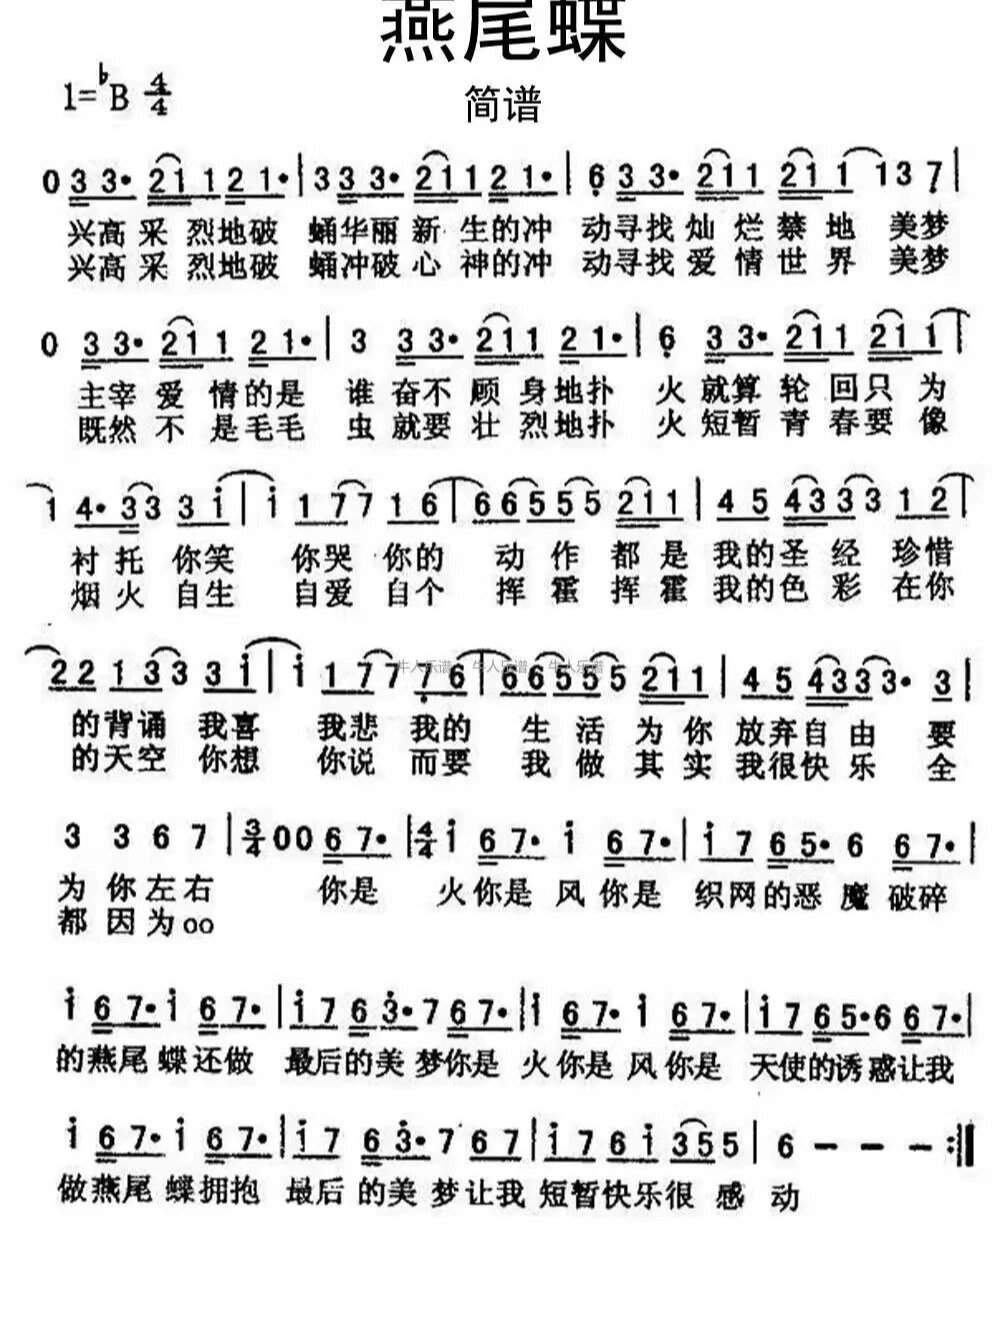 燕尾蝶
简谱
1=♭B 4/4
0 3 3· 2 1 1 2 1· | 3 3 3· 2 1 1 2 1· | 6 3 3· 2 1 1 2 1 1 1 3 7 |
兴高采 烈地破 蛹华丽新 生的冲 动寻找灿烂禁地 美梦
兴高采 烈地破 蛹冲破心 神的冲 动寻找爱情世界 美梦
0 3 3· 2 1 1 2 1· | 3 3 3· 2 1 1 2 1· | 6 3 3· 2 1 1 2 1 1 |
主宰爱 情的是 谁奋不顾 身地扑 火就算轮回只为
既然不 是毛毛 虫就要壮 烈地扑 火短暂青春要像
1 4· 3 3 3 i | i 1 7 7 1 6 | 6 6 5 5 5 2 1 1 | 4 5 4 3 3 3 1 2 |
衬托你笑 你哭你的 动作都是我的圣经珍惜
烟火自生 自爱自个 挥霍挥霍我的色彩在你
2 2 1 3 3 3 i | i 1 7 7 7 6 | 6 6 5 5 5 2 1 1 | 4 5 4 3 3 3· 3 |
牛人乐谱 牛人乐谱 牛人乐谱
的背诵我喜 我悲我的 生活为你放弃自由 要
的天空你想 你说而要 我做其实我很快乐 全
3 3 6 7 | 3/4 0 0 6 7· | 4/4 i 6 7· i 6 7· | i 7 6 5· 6 6 7· |
为你左右 你是 火你是风你是 织网的恶魔破碎
都因为oo
i 6 7· i 6 7· | i 7 6 3· 7 6 7· | i 6 7· i 6 7· | i 7 6 5· 6 6 7· |
的燕尾蝶还做 最后的美梦你是 火你是风你是 天使的诱惑让我
i 6 7· i 6 7· | i 7 6 3· 7 6 7 | i 7 6 i 3 5 5 | 6 — — — :‖
做燕尾蝶拥抱 最后的美梦让我 短暂快乐很感动